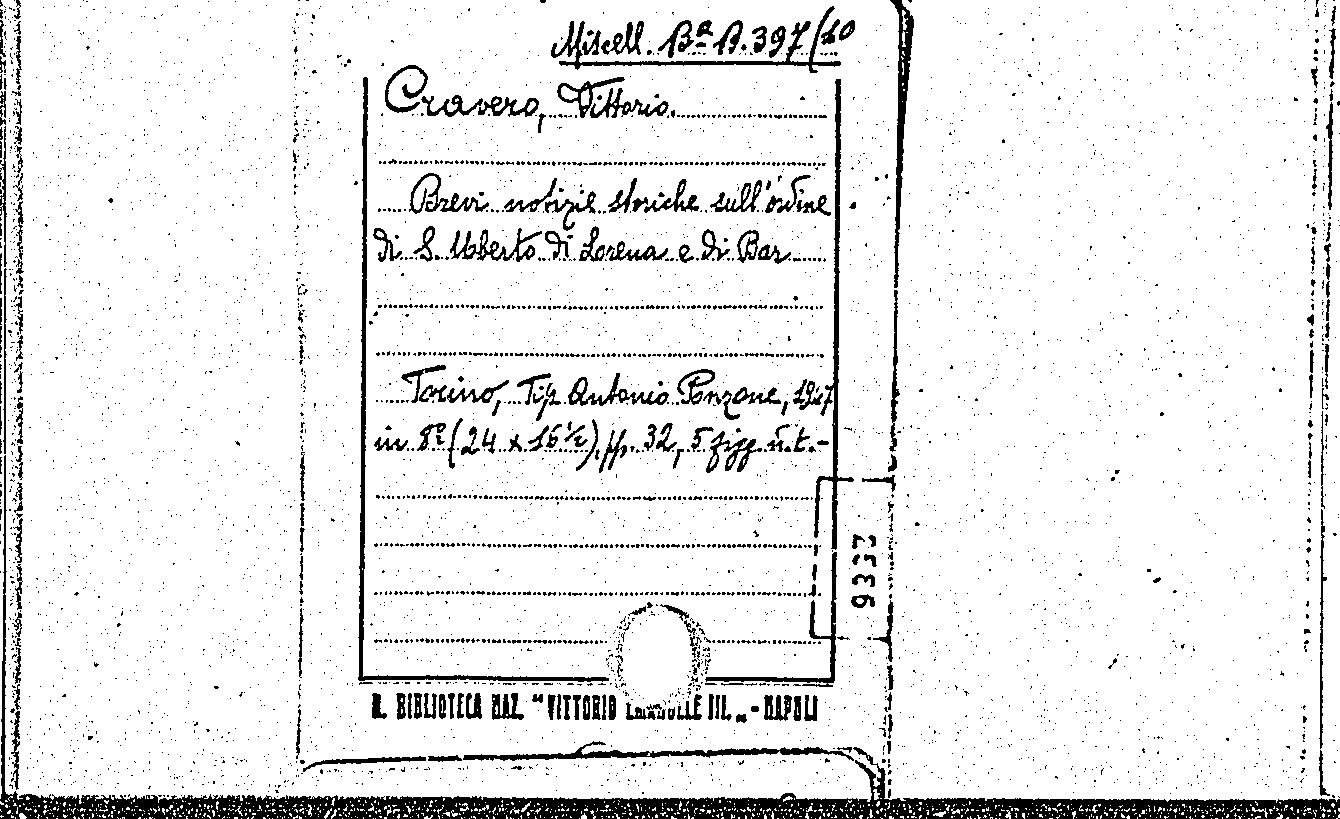 Miscell. Bª B. 397/20
Cravero, Vittorio.
Brevi notizie storiche sull'ordine
di S. Uberto di Lorena e di Bar
Torino, Tip. Antonio Ponzone, 1947
in 8º (24 x 16 ½), pp. 32, 5 figg. n.t.-
2336
R. BIBLIOTECA NAZ. "VITTORIO EMANUELE III." - NAPOLI